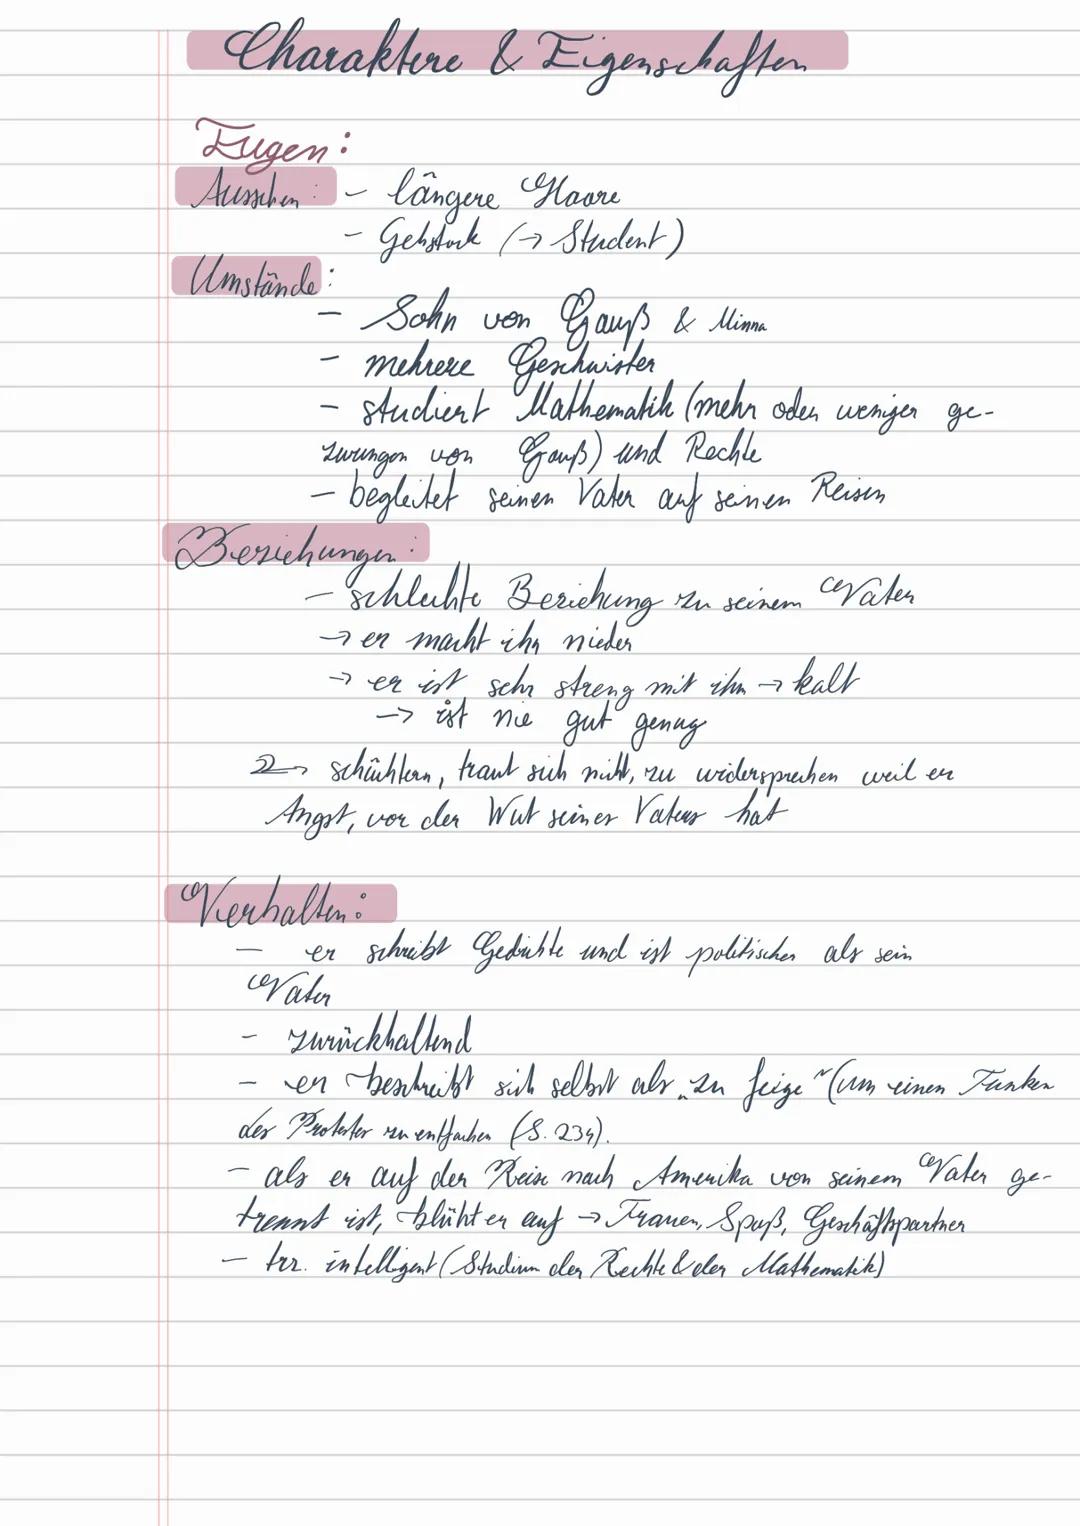 Charaktere & Eigenschaften
Eugen:
Aussehen: - längere Haare
- Gehstock (→ Student)
Umstände:
- Sohn von Gauß & Minna
- mehrere Geschwister
- studiert Mathematik (mehr oder weniger ge-
zwungen von Gauß) und Rechte
- begleitet seinen Vater auf seinen Reisen
Beziehungen:
- schlechte Beziehung zu seinem Vater
→ er macht ihn nieder
→ er ist sehr streng mit ihm → kalt
→ ist nie gut genug
→ schüchtern, traut sich nicht, zu widersprechen weil er
Angst, vor der Wut seines Vaters hat
Verhalten:
- er schreibt Gedichte und ist politischer als sein
Vater
- zurückhaltend
- er beschreibt sich selbst als „zu feige" (um einen Funken
des Protestes zu entfachen (S. 234).
- als er auf der Reise nach Amerika von seinem Vater ge-
trennt ist, blüht er auf → Frauen, Spaß, Geschäftspartner
- intelligent (Studium der Rechte & der Mathematik)